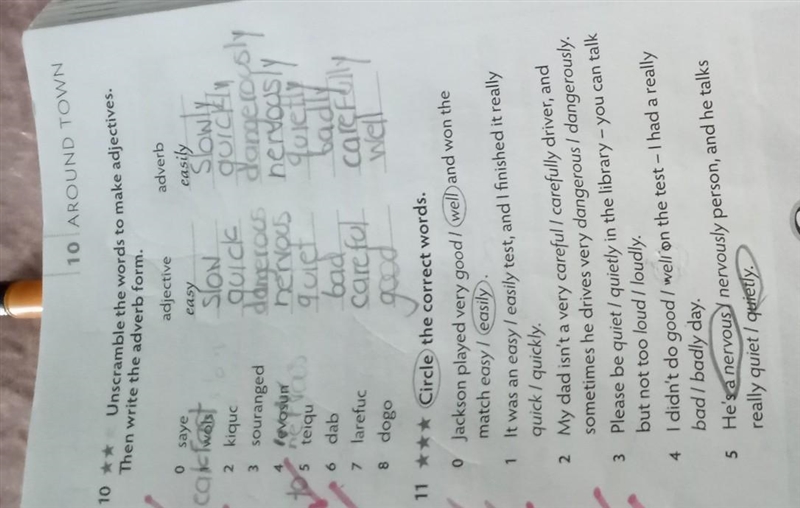 10 AROUND TOWN
10 ★★ Unscramble the words to make adjectives.
Then write the adverb form.
adjective adverb
0 saye easy easily
slow slowly
2 kiquc quick quickly
3 souranged dangerous dangerously
4 nervous nervously
5 teiqu quiet quietly
6 dab bad badly
7 larefuc careful carefully
8 dogo good well
11 ★★★ Circle the correct words.
0 Jackson played very good / well and won the
match easy / easily.
1 It was an easy / easily test, and I finished it really
quick / quickly.
2 My dad isn't a very careful / carefully driver, and
sometimes he drives very dangerous / dangerously.
3 Please be quiet / quietly in the library – you can talk
but not too loud / loudly.
4 I didn't do good / well on the test – I had a really
bad / badly day.
5 He's a nervous / nervously person, and he talks
really quiet / quietly.